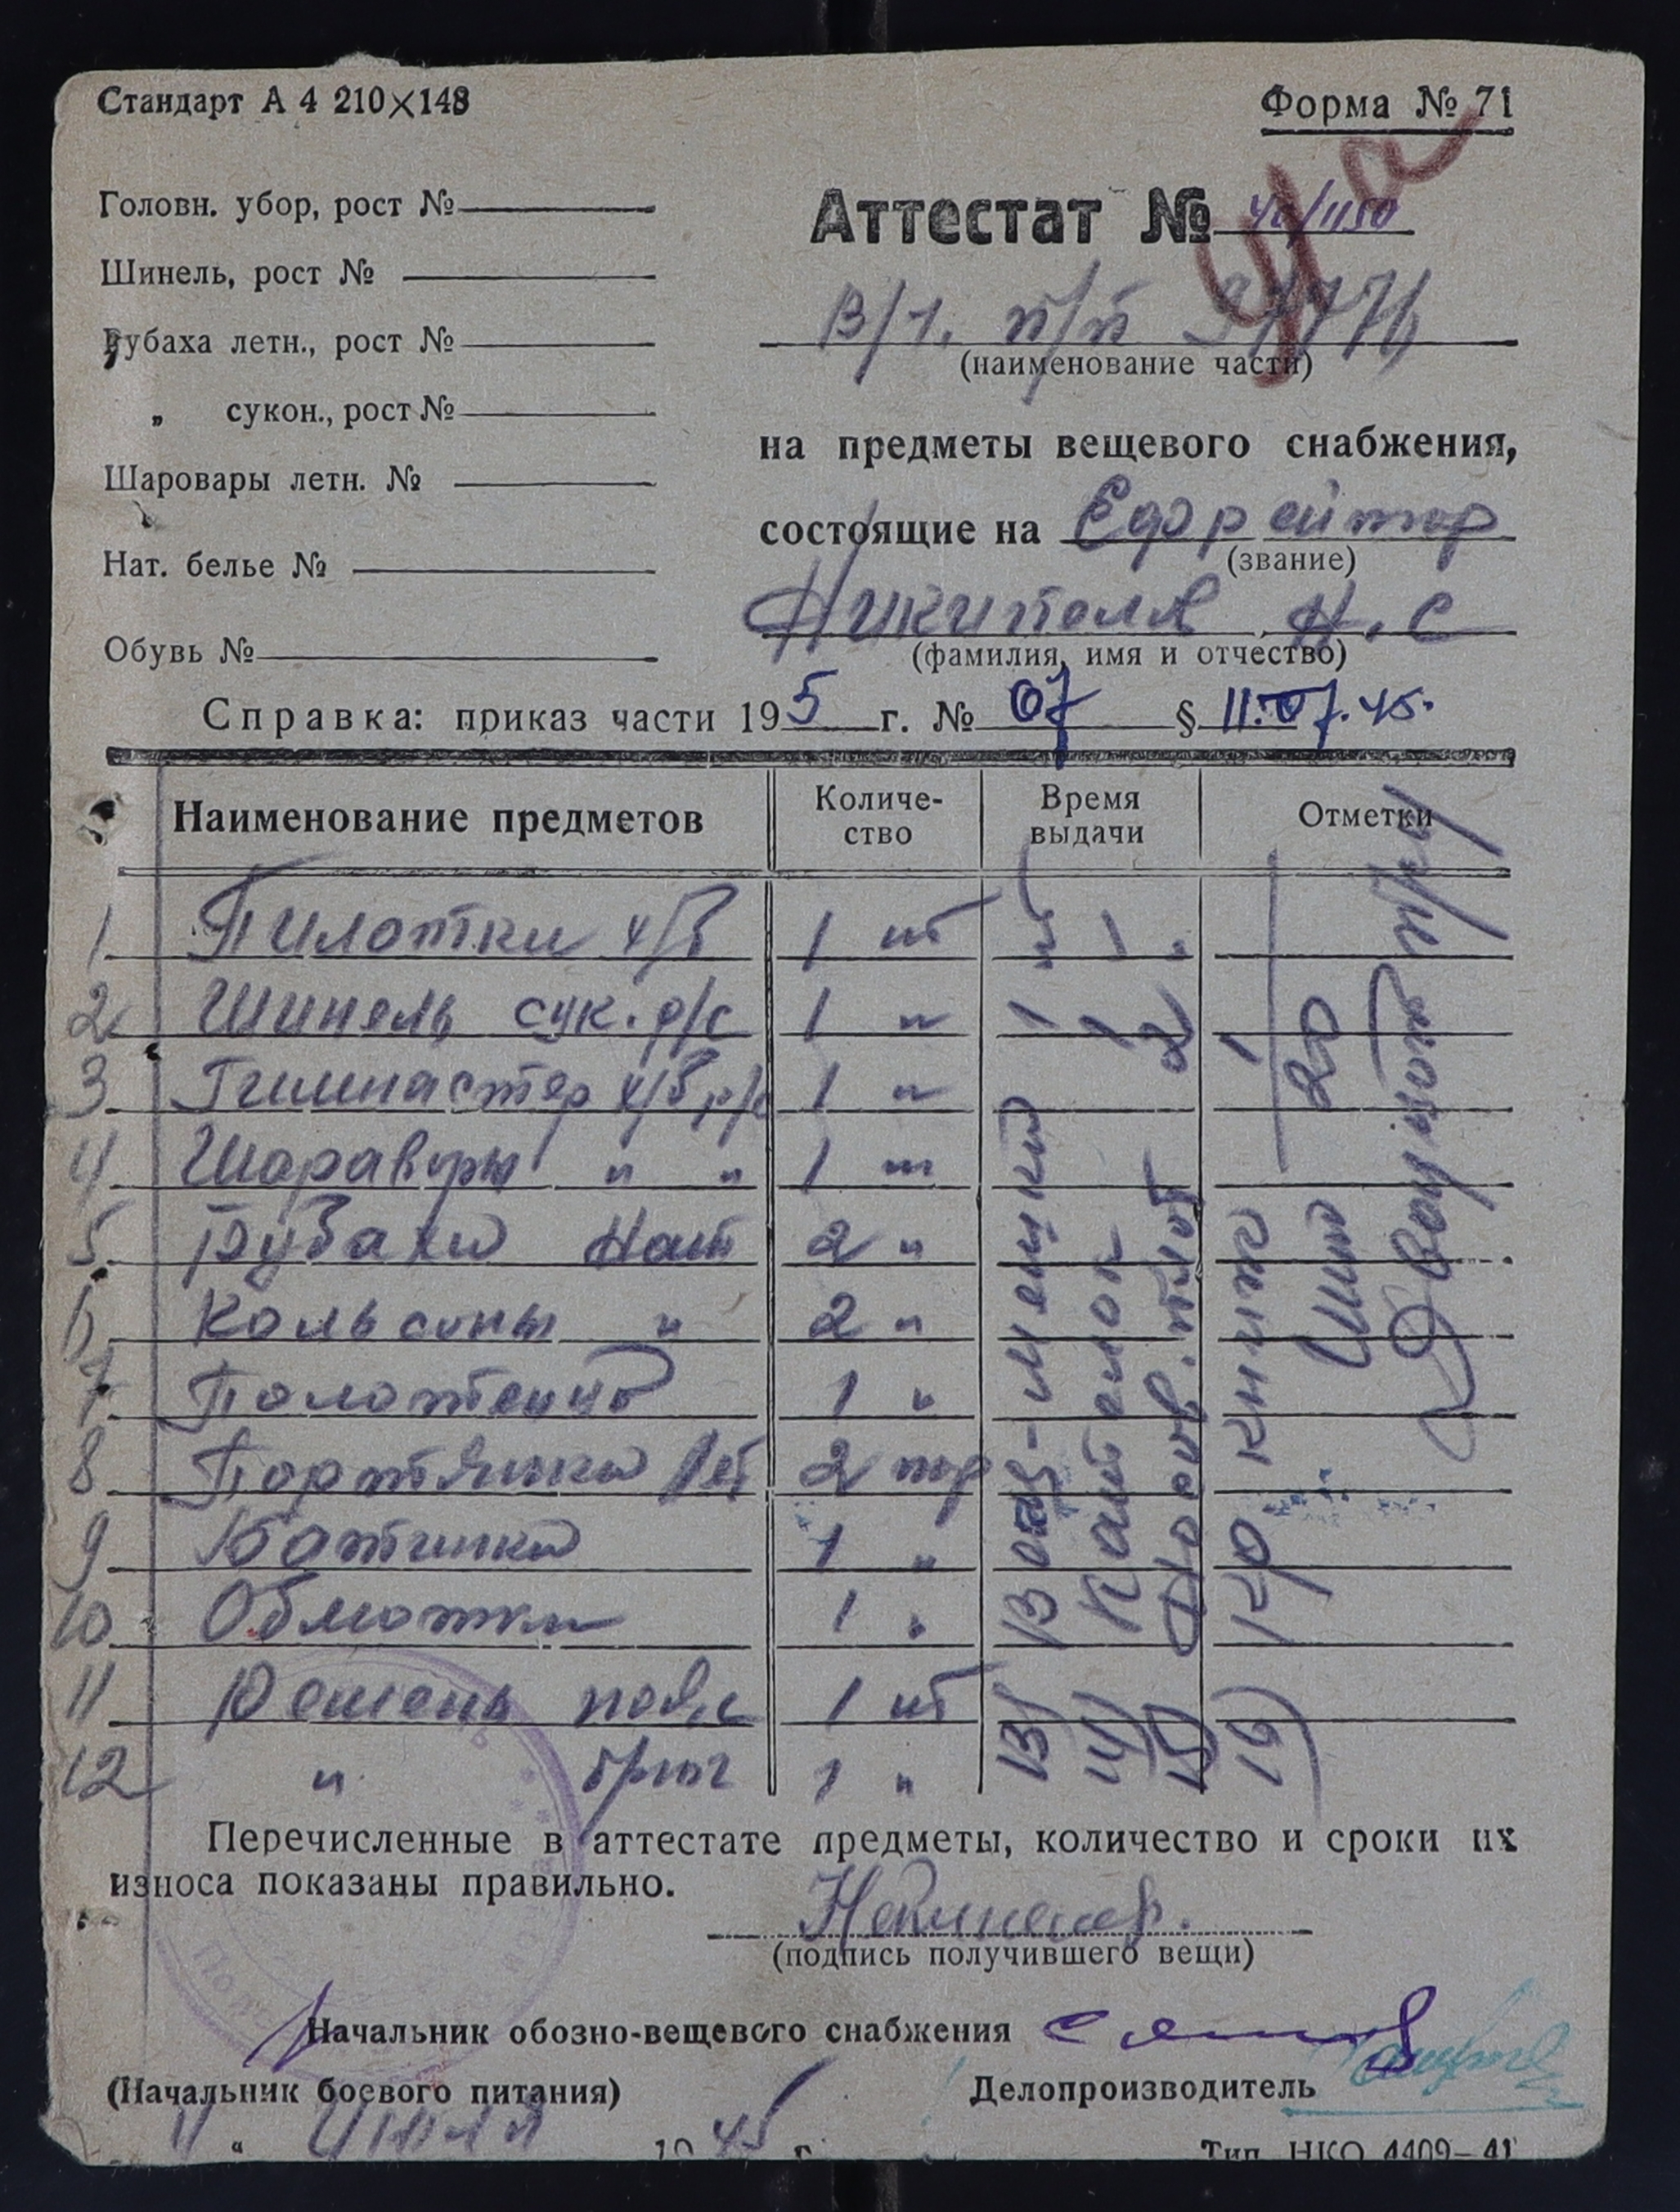 Стандарт А 4 210×148
Форма № 71
Головн. убор, рост №
Шинель, рост №
Рубаха летн., рост №
„ сукон., рост №
Шаровары летн. №
Нат. белье №
Обувь №
Аттестат № /1150
В/ч. п/п
(наименование части)
на предметы вещевого снабжения,
состоящие на Ефрейтор
(звание)
Н. С
(фамилия, имя и отчество)
Справка: приказ части 195 г. № 07 § 11.07.45.
Наименование предметов
Количе-
ство
Время
выдачи
Отметки
1 Пилотки х/б 1 шт
2 Шинель сук. р/с 1 "
3 Гимнастер х/б р/с 1 "
4 Шаравары " " 1 "
5 Рубахи Нат 2 "
6 Кальсоны " 2 "
7 Полотенцо 1 "
8 Портянки лет 2 пар
9 Ботинки 1 "
10 Обмотки 1 "
11 Ремень пояс 1 шт
12 " брюч 1 "
13)
14) Котелок 1
15)
16) книж
Перечисленные в аттестате предметы, количество и сроки их
износа показаны правильно.
(подпись получившего вещи)
Начальник обозно-вещевого снабжения
(Начальник боевого питания)
Делопроизводитель
11 " июля 1945 г.
Тип. НКО 4409—41